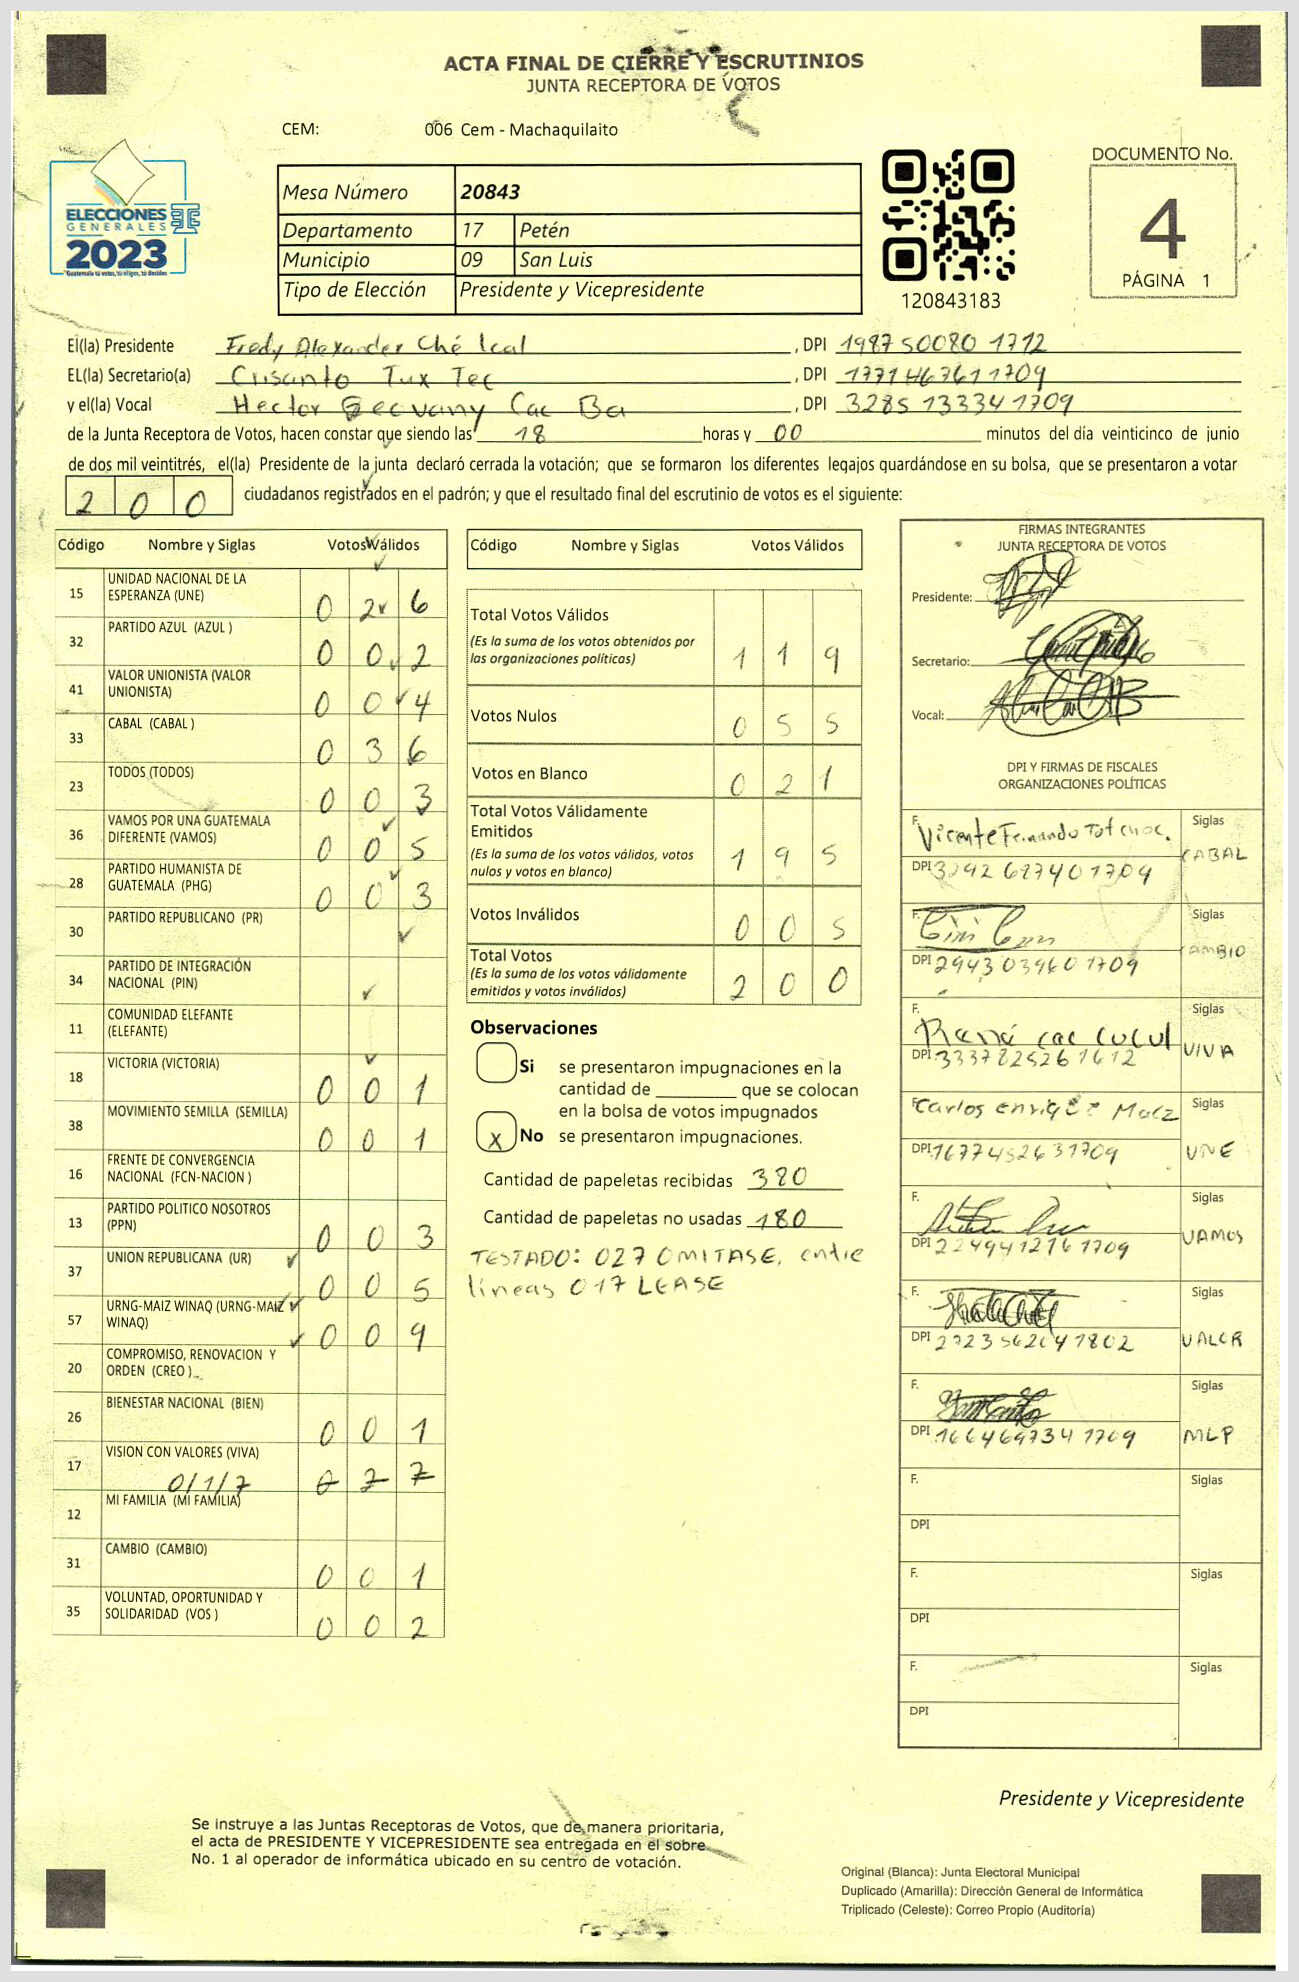 ACTA FINAL DE CIERRE Y ESCRUTINIOS
JUNTA RECEPTORA DE VOTOS
CEM: 006 Cem - Machaquilaito
ELECCIONES
GENERALES
2023
Mesa Número 20843
Departamento 17 Petén
Municipio 09 San Luis
Tipo de Elección Presidente y Vicepresidente
120843183
DOCUMENTO No.
4
PÁGINA 1
El(la) Presidente Fredy Alexander Ché Ical, DPI 1987 50080 1712
EL(la) Secretario(a) Crisanto Tux Tec, DPI 1771467611709
y el(la) Vocal Hector Geovany Cac Ba, DPI 3285 133341709
de la Junta Receptora de Votos, hacen constar que siendo las 18 horas y 00 minutos del día veinticinco de junio
de dos mil veintitrés, el(la) Presidente de la junta declaró cerrada la votación; que se formaron los diferentes legajos guardándose en su bolsa, que se presentaron a votar
2 0 0 ciudadanos registrados en el padrón; y que el resultado final del escrutinio de votos es el siguiente:
Código Nombre y Siglas Votos Válidos
15 UNIDAD NACIONAL DE LA ESPERANZA (UNE) 0 2 6
32 PARTIDO AZUL (AZUL ) 0 0 2
41 VALOR UNIONISTA (VALOR UNIONISTA) 0 0 4
33 CABAL (CABAL ) 0 3 6
23 TODOS (TODOS) 0 0 3
36 VAMOS POR UNA GUATEMALA DIFERENTE (VAMOS) 0 0 5
28 PARTIDO HUMANISTA DE GUATEMALA (PHG) 0 0 3
30 PARTIDO REPUBLICANO (PR)
34 PARTIDO DE INTEGRACIÓN NACIONAL (PIN)
11 COMUNIDAD ELEFANTE (ELEFANTE)
18 VICTORIA (VICTORIA) 0 0 1
38 MOVIMIENTO SEMILLA (SEMILLA) 0 0 1
16 FRENTE DE CONVERGENCIA NACIONAL (FCN-NACION )
13 PARTIDO POLITICO NOSOTROS (PPN) 0 0 3
37 UNION REPUBLICANA (UR) 0 0 5
57 URNG-MAIZ WINAQ (URNG-MAIZ WINAQ) 0 0 9
20 COMPROMISO, RENOVACION Y ORDEN (CREO )
26 BIENESTAR NACIONAL (BIEN) 0 0 1
17 VISION CON VALORES (VIVA) 0/1/7 0 2 7
12 MI FAMILIA (MI FAMILIA)
31 CAMBIO (CAMBIO) 0 0 1
35 VOLUNTAD, OPORTUNIDAD Y SOLIDARIDAD (VOS ) 0 0 2
Código Nombre y Siglas Votos Válidos
Total Votos Válidos 1 1 9
(Es la suma de los votos obtenidos por
las organizaciones políticas)
Votos Nulos 0 5 5
Votos en Blanco 0 2 1
Total Votos Válidamente
Emitidos 1 9 5
(Es la suma de los votos válidos, votos
nulos y votos en blanco)
Votos Inválidos 0 0 5
Total Votos 2 0 0
(Es la suma de los votos válidamente
emitidos y votos inválidos)
Observaciones
Si se presentaron impugnaciones en la
cantidad de ________ que se colocan
en la bolsa de votos impugnados
X No se presentaron impugnaciones.
Cantidad de papeletas recibidas 380
Cantidad de papeletas no usadas 180
TESTADO: 027 OMITASE, entre
lineas 017 LEASE
FIRMAS INTEGRANTES
JUNTA RECEPTORA DE VOTOS
Presidente:
Secretario:
Vocal:
DPI Y FIRMAS DE FISCALES
ORGANIZACIONES POLÍTICAS
F. Vicente Fernando Tot Choc. Siglas
DPI 3292 687401709 CABAL
F. Siglas
DPI 2943 039601709 CAMBIO
F. René cac cucul Siglas
DPI 3337825261612 VIVA
F. Carlos enrique Maez Siglas
DPI 1677452631709 UNE
F. Siglas
DPI 2249412161709 VAMOS
F. Siglas
DPI 2723562041802 VALOR
F. Siglas
DPI 1664697341709 MLP
F. Siglas
DPI
F. Siglas
DPI
F. Siglas
DPI
Presidente y Vicepresidente
Se instruye a las Juntas Receptoras de Votos, que de manera prioritaria,
el acta de PRESIDENTE Y VICEPRESIDENTE sea entregada en el sobre
No. 1 al operador de informática ubicado en su centro de votación.
Original (Blanca): Junta Electoral Municipal
Duplicado (Amarilla): Dirección General de Informática
Triplicado (Celeste): Correo Propio (Auditoría)